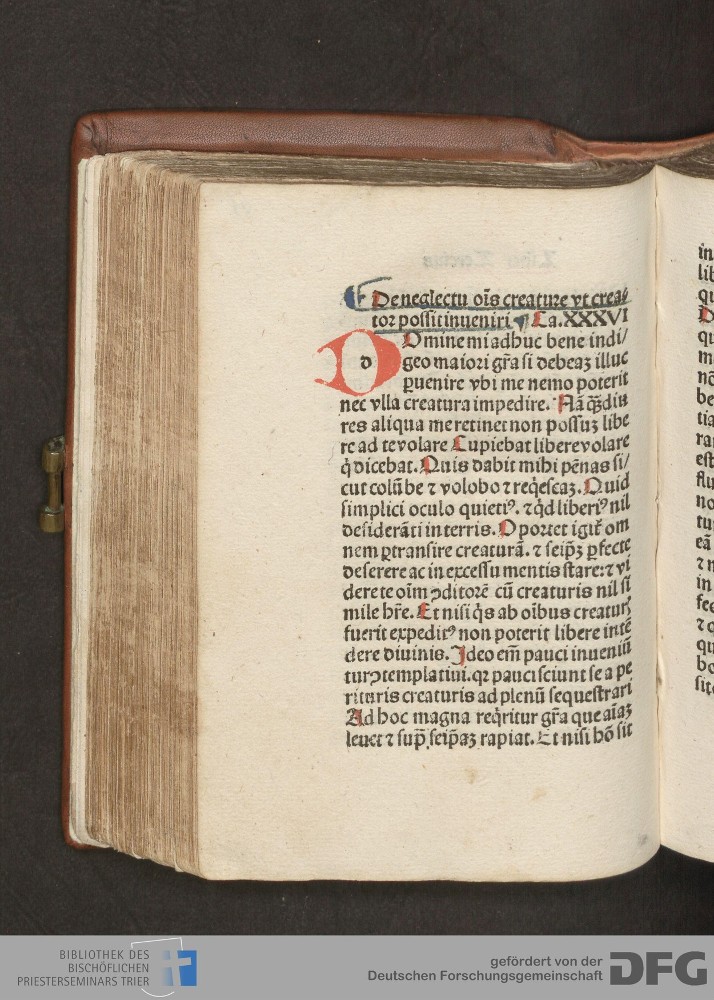 De neglectu oīs creature vt crea⸗
tor possit inueniri Ca. XXXVI
d Omine mi adhuc bene indi/
geo maiori gr̄a si debeaʒ illuc
ꝑuenire vbi me nemo poterit
nec vlla creatura impedire. Nā q̄ʒdiu
res aliqua me retinet non possuʒ libe
re ad te volare Cupiebat libere volare
q̇ dicebat. Quis dabit mihi pēnas si/
cut colūbe ⁊ volobo ⁊ req̇escaʒ. Quid
simplici oculo quietiꝰ. ⁊ q̇d liberiꝰ nil
desiderāti in terris. Oportet igit̄ om
nem ꝑtransire creaturā. ⁊ seip̄ʒ ꝑfecte
deserere ac in excessu mentis stare: ⁊ vi
dere te oīm ꝯditorē cū creaturis nil si
mile hr̄e. Et nisi q̇s ab oībus creaturꝭ
fuerit expeditꝰ non poterit libere intē
dere diuinis. Ideo em̄ pauci inueniū
tur ꝯtemplatiui. qꝛ pauci sciunt se a pe
rituris creaturis ad plenū sequestrari
Ad hoc magna req̇ritur gr̄a que aīaʒ
leuet ⁊ sup̄ seip̄aʒ rapiat. Et nisi hō sit
in
lib
qu
qu
m
nō
be
tia
est
flu
no
tu
eā
⁊ n
in
fec
⁊ q
qu
bo
sit
BIBLIOTHEK DES
BISCHÖFLICHEN
PRIESTERSEMINARS TRIER
gefördert von der
Deutschen Forschungsgemeinschaft DFG